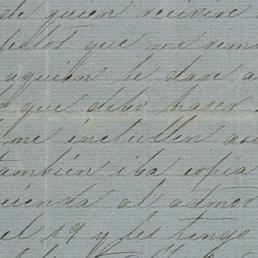 de quien recivire
que me remi
a quien le dare a
que debo hacer
me inclullen as
tambien iba copia
uienda al admor
el 19 y les tengo